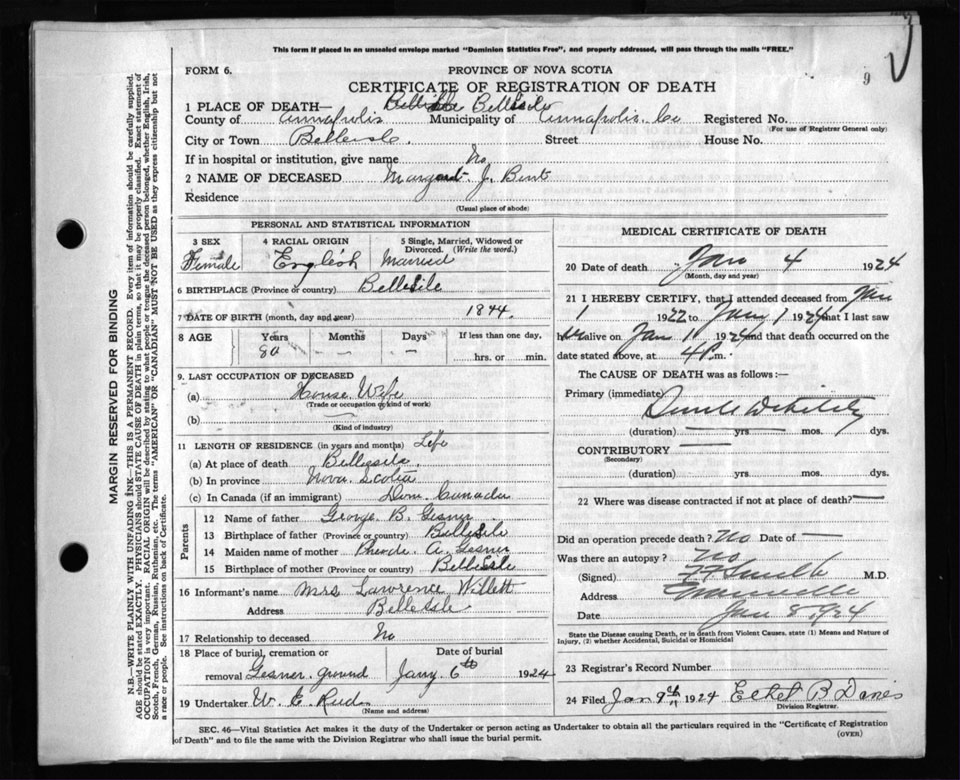 This form if placed in an unsealed envelope marked "Dominion Statistics Free", and properly addressed, will pass through the mails "FREE."
FORM 6. PROVINCE OF NOVA SCOTIA 9
CERTIFICATE OF REGISTRATION OF DEATH
1 PLACE OF DEATH—
County of Annapolis Municipality of Annapolis Co Registered No.
(For use of Registrar General only)
City or Town Belleisle. Street House No.
If in hospital or institution, give name No
2 NAME OF DECEASED Margaret J. Bent
Residence
(Usual place of abode)
PERSONAL AND STATISTICAL INFORMATION
3 SEX 4 RACIAL ORIGIN 5 Single, Married, Widowed or Divorced. (Write the word.)
Female English Married
6 BIRTHPLACE (Province or country)
7 DATE OF BIRTH (month, day and year) 1844.
8 AGE Years Months Days If less than one day,
80 — — hrs. or min.
9. LAST OCCUPATION OF DECEASED
(a) House Wife
(Trade or occupation or kind of work)
(b)
(Kind of industry)
11 LENGTH OF RESIDENCE (in years and months) Life
(a) At place of death
(b) In province Nova Scotia
(c) In Canada (if an immigrant) Dom. Canada
Parents
12 Name of father George B. Gesner
13 Birthplace of father (Province or country)
14 Maiden name of mother A. Gesner
15 Birthplace of mother (Province or country)
16 Informant's name Mrs Lawrence Willett
Address
17 Relationship to deceased No
18 Place of burial, cremation or removal Date of burial
Gesner ground Jany. 6th 1924
19 Undertaker W. E.
(Name and address)
MEDICAL CERTIFICATE OF DEATH
20 Date of death Jan 4 1924
(Month, day and year)
21 I HEREBY CERTIFY, that I attended deceased from Jan
1 1922 to Jany 1 1924 that I last saw
her alive on Jan 1 1924 and that death occurred on the
date stated above, at 4 P.m.
The CAUSE OF DEATH was as follows:—
Primary (immediate) Senile Debility
(duration) yrs mos. dys.
CONTRIBUTORY
(Secondary)
(duration) yrs. mos. dys.
22 Where was disease contracted if not at place of death?—
Did an operation precede death? No Date of —
Was there an autopsy? No
(Signed) M.D.
Address
Date Jan 8 1924
State the Disease causing Death, or in death from Violent Causes, state (1) Means and Nature of Injury, (2) whether Accidental, Suicidal or Homicidal
23 Registrar's Record Number
24 Filed Jan 9th 1924 Ethel B
Division Registrar.
SEC. 46—Vital Statistics Act makes it the duty of the Undertaker or person acting as Undertaker to obtain all the particulars required in the "Certificate of Registration
of Death" and to file the same with the Division Registrar who shall issue the burial permit.
(OVER)
MARGIN RESERVED FOR BINDING
N.B.—WRITE PLAINLY WITH UNFADING INK—THIS IS A PERMANENT RECORD. Every item of information should be carefully supplied.
AGE should be stated EXACTLY. PHYSICIANS should STATE CAUSE OF DEATH in plain terms, so that it may be properly classified. Exact statement of
OCCUPATION is very important. RACIAL ORIGIN will be described by stating to what people or tongue the deceased person belonged, whether English, Irish,
Scotch, French, German, Russian, Ruthenian, etc. The terms "AMERICAN" OR "CANADIAN" MUST NOT BE USED as they express citizenship but not
a race or people. See instructions on back of Certificate.